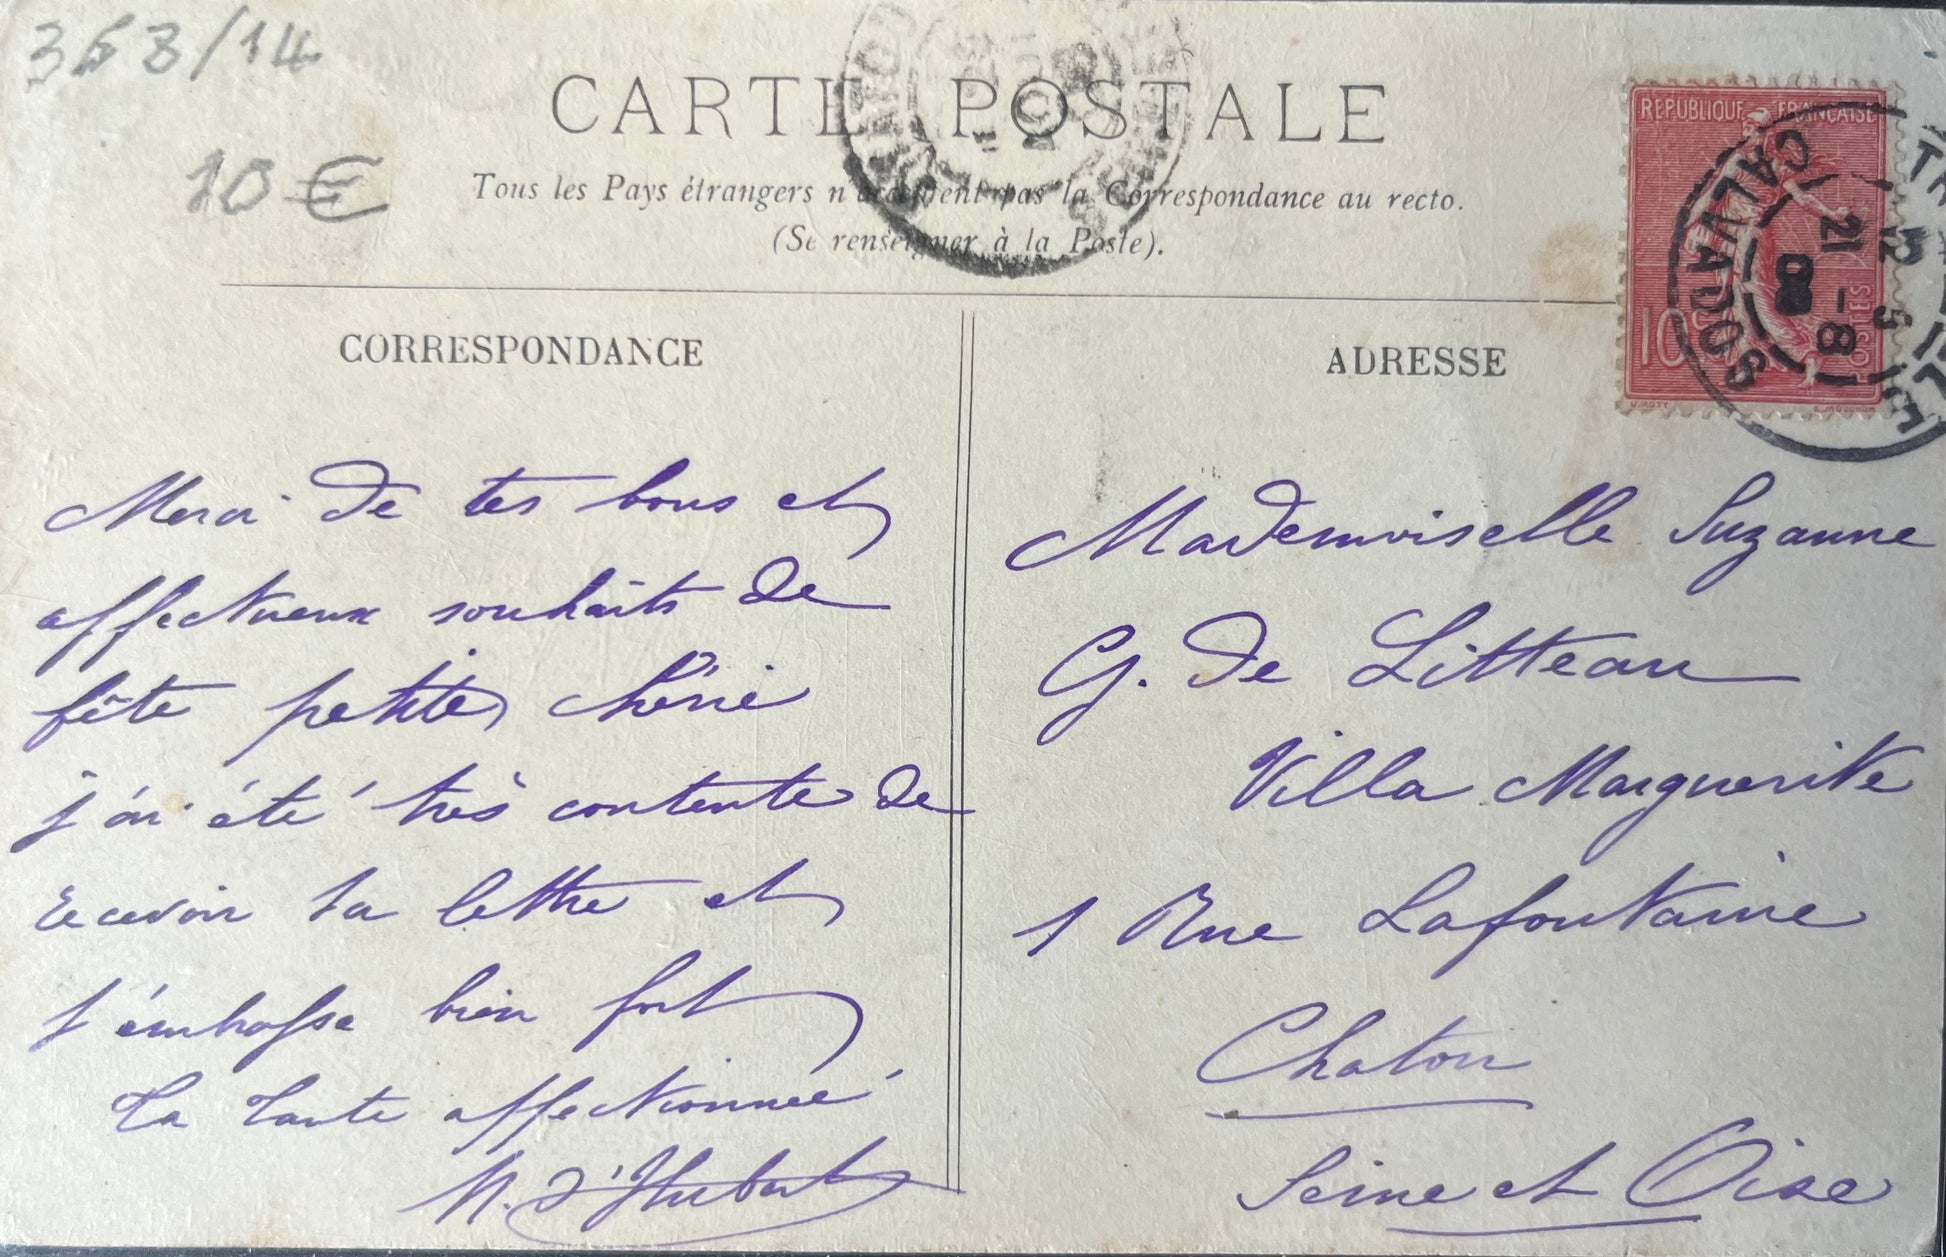 363/14
10 €
CARTE POSTALE
Tous les Pays étrangers n'acceptent pas la Correspondance au recto.
(Se renseigner à la Poste).
REPUBLIQUE FRANÇAISE
10
POSTES
O. ROTY
E. MOUCHON
CALVADOS
21 - 8
08
CORRESPONDANCE
Merci de tes bons et
affectueux souhaits de
fête petite chérie
j'ai été très contente de
recevoir ta lettre et
t'embrasse bien fort
Ta tante affectionnée
M. d'Hubert
ADRESSE
Mademoiselle Suzanne
G. de Litteau
Villa Marguerite
1 Rue Lafontaine
Chatou
Seine et Oise